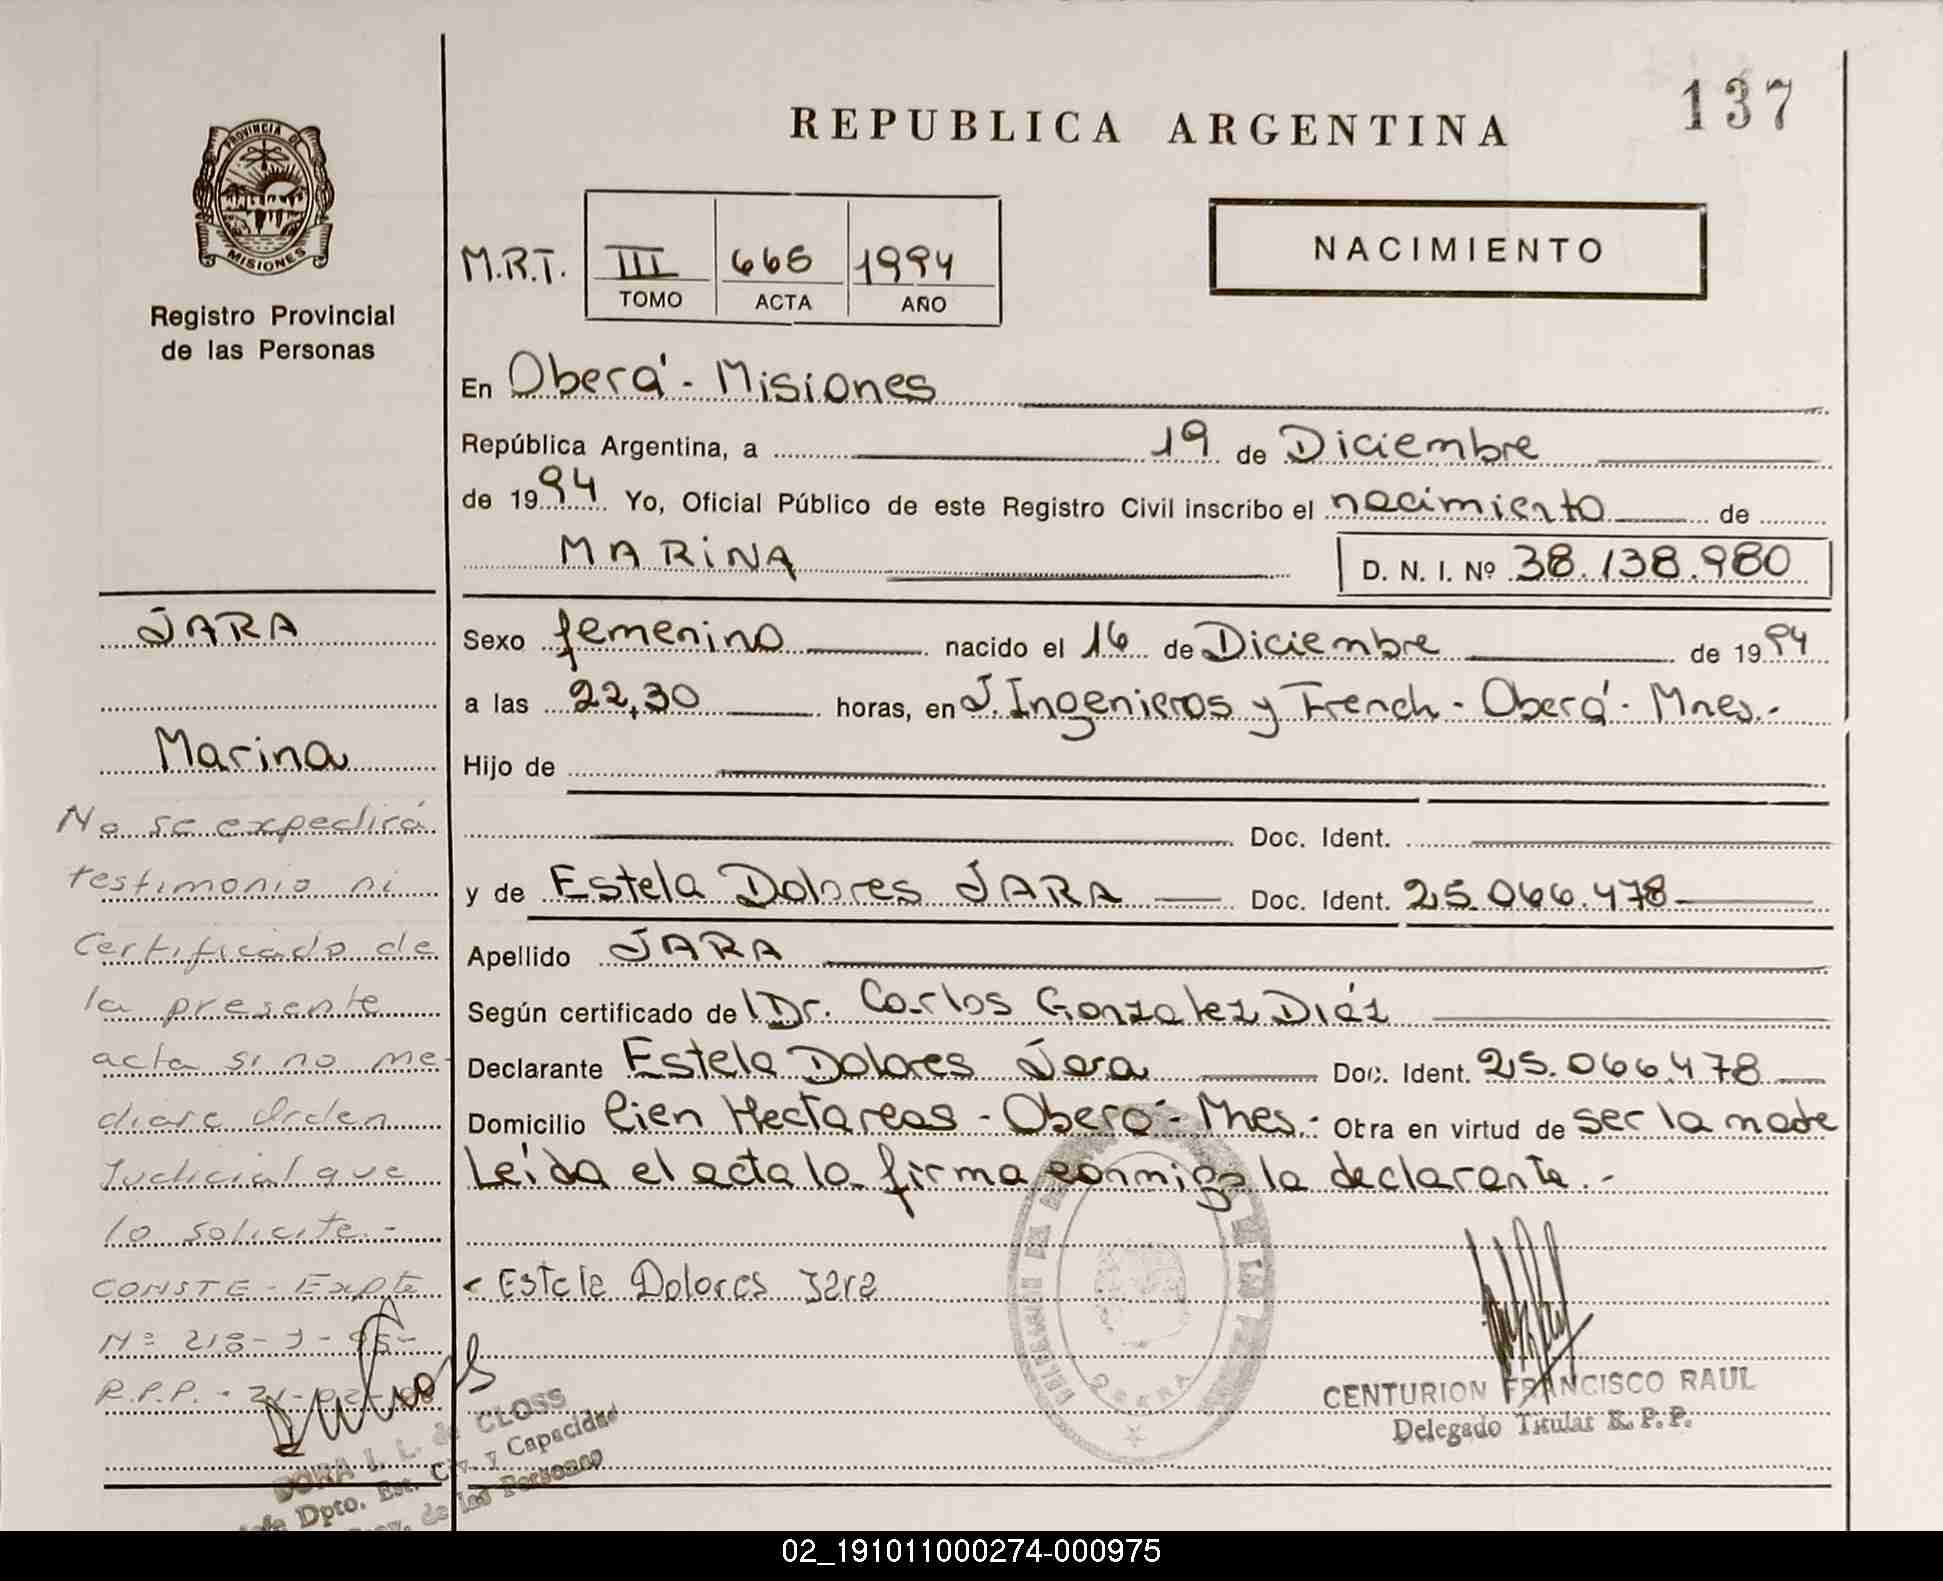 137
REPUBLICA ARGENTINA
PROVINCIA DE
MISIONES
Registro Provincial
de las Personas
M.R.T. III 666 1994
TOMO ACTA AÑO
NACIMIENTO
En Oberá - Misiones
República Argentina, a 19 de Diciembre
de 1994 Yo, Oficial Público de este Registro Civil inscribo el nacimiento de
MARINA D. N. I. Nº 38.138.980
JARA
Marina
Sexo femenino nacido el 16 de Diciembre de 1994
a las 22,30 horas, en J. Ingenieros y French - Oberá - Mnes.-
Hijo de
Doc. Ident.
y de Estela Dolores JARA Doc. Ident. 25.066.478
Apellido JARA
Según certificado del Dr. Carlos Gonzalez Diáz
Declarante Estela Dolores Jara Doc. Ident. 25.066.478
Domicilio Cien Hectareas - Oberá - Mnes.- Obra en virtud de ser la madre
Leída el acta la firma conmigo la declarante.-
Estela Dolores Jara
No se expedirá
testimonio ni
Certificado de
la presente
acta si no me-
diare Orden
Judicial que
lo solicite.-
CONSTE - Expte
Nº 218-J-95-
R.P.P. -
DORA L. L. de CLOSS
Jefe Dpto. Est. Civ. y Capacidad
Prov. de las Personas
OBERA
CENTURION FRANCISCO RAUL
Delegado Titular R. P. P.
02_191011000274-000975